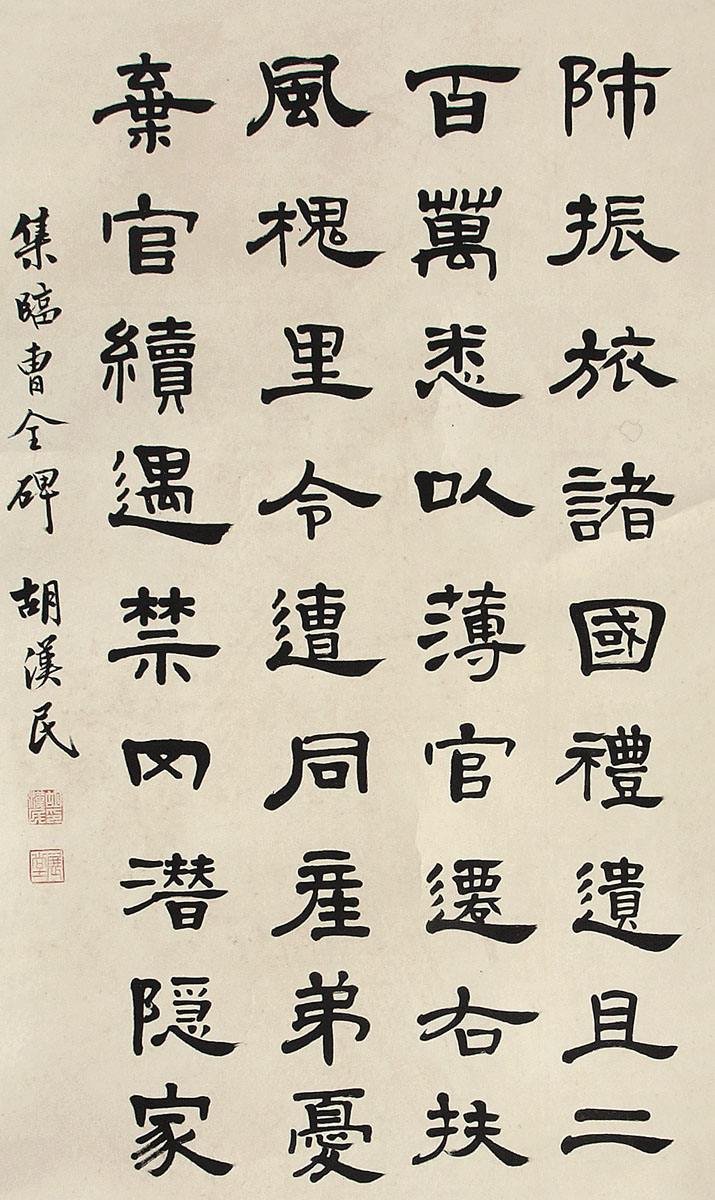 師振旅諸國禮遺且二
百萬悉以薄官遷右扶
風槐里令遭同産弟憂
棄官續遇禁网潜隐家
集臨曹全碑 胡漢民
展堂